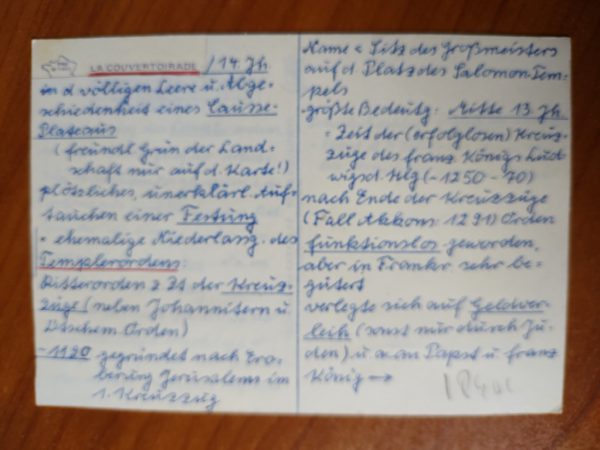 LA COUVERTOIRADE / 14. Jh.
in d völligen Leere u. Abge-
schiedenheit eines Causse-
Plateaus
(freundl Grün der Land-
schaft nur auf d. Karte!)
plötzliches, unerklärl. Auf-
tauchen einer Festung
= ehemalige Niederlang. des
Templerordens:
Ritterorden z Zt der Kreuz-
züge (neben Johannitern u.
Dtschem Orden)
~1120 gegründet nach Ero-
berung Jerusalems im
1. Kreuzzug
Name = Sitz des Großmeisters
auf d. Platz des Salomon-Tem-
pels
größte Bedeutg: Mitte 13. Jh.
= Zeit der (erfolglosen) Kreuz-
züge des franz. Königs Lud
wigs d. Hlg (~1250-70)
nach Ende der Kreuzzüge
(Fall Akkons: 1291) Orden
funktionslos geworden,
aber in Frankr. sehr be-
gütert
verlegte sich auf Geldver-
leih (sonst nur durch Ju-
den) u. an Papst u franz
König →